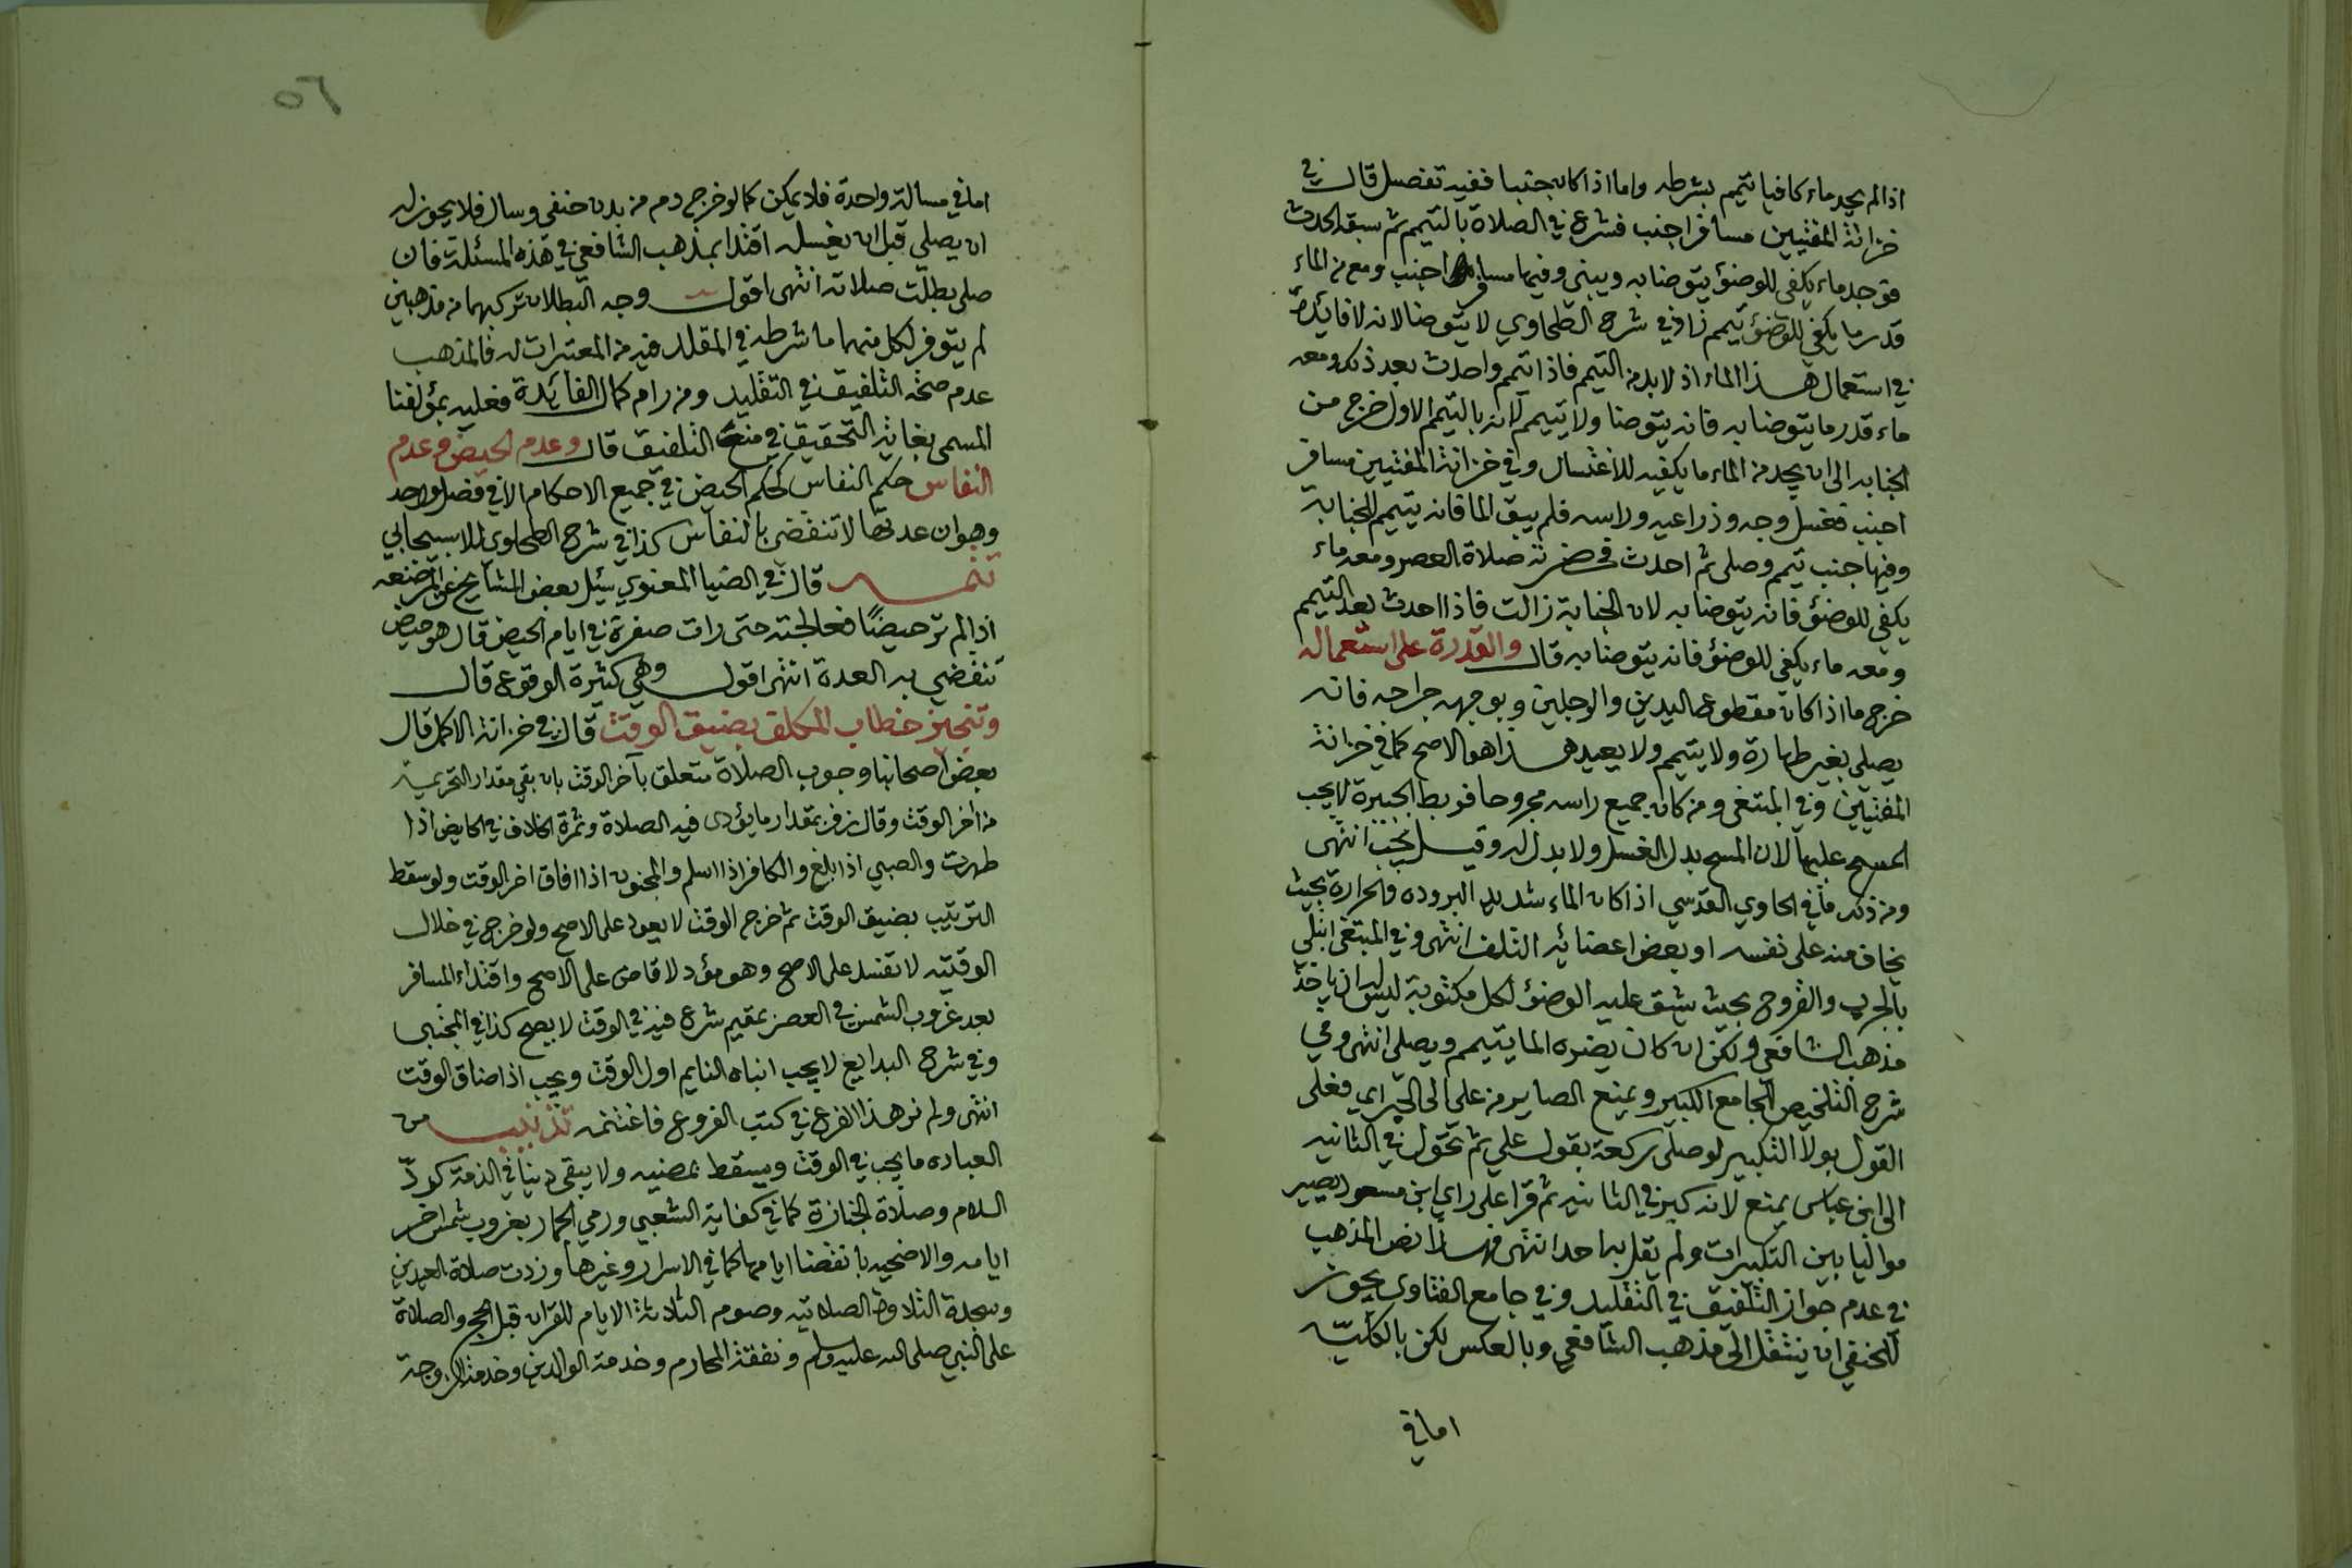 اذا لم يجد ماء كافيا تيمم بشرطه واما اذا كان جنبا ففيه تفصيل قال في
خزانة المفتيين مسافر اجنب فشرع في الصلاة بالتيمم ثم سبقه الحدث
فوجد ماء يكفي للوضوء يتوضا به ويبني وفيها مسافر اجنب ومعه من الماء
قدر ما يكفي للوضوء تيمم زاد في شرح الطحاوي لا يتوضا لانه لا فائدة
في استعمال هذا الماء اذ لا بد من التيمم فاذا تيمم واحدث بعد ذلك ومعه
ماء قدر ما يتوضا به فانه يتوضا ولا يتيمم لانه بالتيمم الاول خرج من
الجنابه الى ان يجد من الماء ما يكفيه للاغتسال وفي خزانة المفتيين مسافر
اجنب فغسل وجهه وذراعيه وراسه فلم يبق الما فانه يتيمم للجنابة
وفيها جنب تيمم وصلى ثم احدث فحضرته صلاة العصر ومعه ماء
يكفي للوضوء فانه يتوضا به لان الجنابة زالت فاذا احدث بعد التيمم
ومعه ماء يكفي للوضوء فانه يتوضا به قال والقدرة على استعماله
خرج ما اذا كان مقطوع اليدين والرجلين وبوجهه جراحه فانه
يصلي بغير طهارة ولا يتيمم ولا يعيد هذا هو الاصح كما في خزانة
المفتيين وفي المبتغى ومن كان جميع راسه مجروحا فربط الجبيرة لا يجب
المسح عليها لان المسح بدل الغسل ولا بدل له وقيل يجب انتهى
ومن ذلك ما في الحاوي القدسي اذا كان الماء شديد البروده والحرارة بحيث
يخاف منه على نفسه او بعض اعضائه التلف انتهى وفي المبتغى ابتلي
بالجرب والقروح بحيث يشق عليه الوضوء لكل مكتوبة ليس له ان ياخذ
مذهب الشافعي ولكن ان كان يضره الما يتيمم ويصلي انتهى وفي
شرح التلخيص الجامع الكبير ويمنع الصاير من علي الى الحبر اي فعلى
القول بولا التكبير لو صلى ركعة بقول علي ثم تحول في الثانيه
الى ابن عباس يمنع لانه كبر في الثانيه ثم قرا على راي ابن مسعود يصير
مواليا بين التكبيرات ولم يقل به احد انتهى فهذا نص المذهب
في عدم جواز التلفيق في التقليد وفي جامع الفتاوى يجوز
للحنفي ان ينتقل الى مذهب الشافعي وبالعكس لكن بالكليه
اما في
٥٦
اما في مسالة واحدة فلا يمكن كما لو خرج دم من بدن حنفي وسال فلا يجوز له
ان يصلي قبل ان يغسله اقتدا بمذهب الشافعي في هذه المسئلة فان
صلى بطلت صلاته انتهى اقول وجه البطلان تركبهما من مذهبين
لم يتوفر لكل منهما ما شرطه في المقلد فيه من المعتبرات له فالمذهب
عدم صحة التلفيق في التقليد ومن رام كمال الفائدة فعليه بمؤلفنا
المسمى بغاية التحقيق في منع التلفيق قال وعدم الحيض وعدم
النفاس حكم النفاس كحكم الحيض في جميع الاحكام الا في فصل واحد
وهو ان عدتها لا تنقضي بالنفاس كذا في شرح الطحاوي للاسبيجابي
تتمه قال في الضيا المعنوي سئل بعض المشايخ عن المرضعه
اذا لم تر حيضًا فعالجته حتى رات صفرة في ايام الحيض قال هو حيض
تنقضي به العدة انتهى اقول وهي كثيرة الوقوع قال
وتنجيز خطاب المكلف بضيق الوقت قال في خزانة الاكمل قال
بعض اصحابنا وجوب الصلاة متعلق بآخر الوقت بان بقي مقدار التحريمة
من اخر الوقت وقال زفر بمقدار ما يؤدى فيه الصلاة وثمرة الخلاف في الحايض اذا
طهرت والصبي اذا بلغ والكافر اذا اسلم والمجنون اذا افاق اخر الوقت ولو سقط
الترتيب بضيق الوقت ثم خرج الوقت لا يعود على الاصح ولو خرج في خلال
الوقتيه لا تفسد على الاصح وهو مؤد لا قاض على الاصح واقتداء المسافر
بعد غروب الشمس في العصر بمقيم شرع فيه في الوقت لا يصح كذا في المجتبى
وفي شرح البدايع لا يجب انتباه النايم اول الوقت ويجب اذا ضاق الوقت
انتهى ولم نر هذا الفرع في كتب الفروع فاغتنمه تذنيب من
العباده ما يجب في الوقت ويسقط بمضيه ولا يبقى دينا في الذمة كردّ
السلام وصلاة الجنازة كما في كفاية الشعبي ورمي الجمار بغروب شمس اخر
ايامه والاضحيه بانقضا ايامها كما في الاسرار وغيرها وزدت صلاة العيدين
وسجدة التلاوة الصلاتيه وصوم الثلاثة الايام للقران قبل الحج والصلاة
على النبي صلى الله عليه وسلم ونفقة المحارم وخدمة الوالدين وخدمة الزوجة